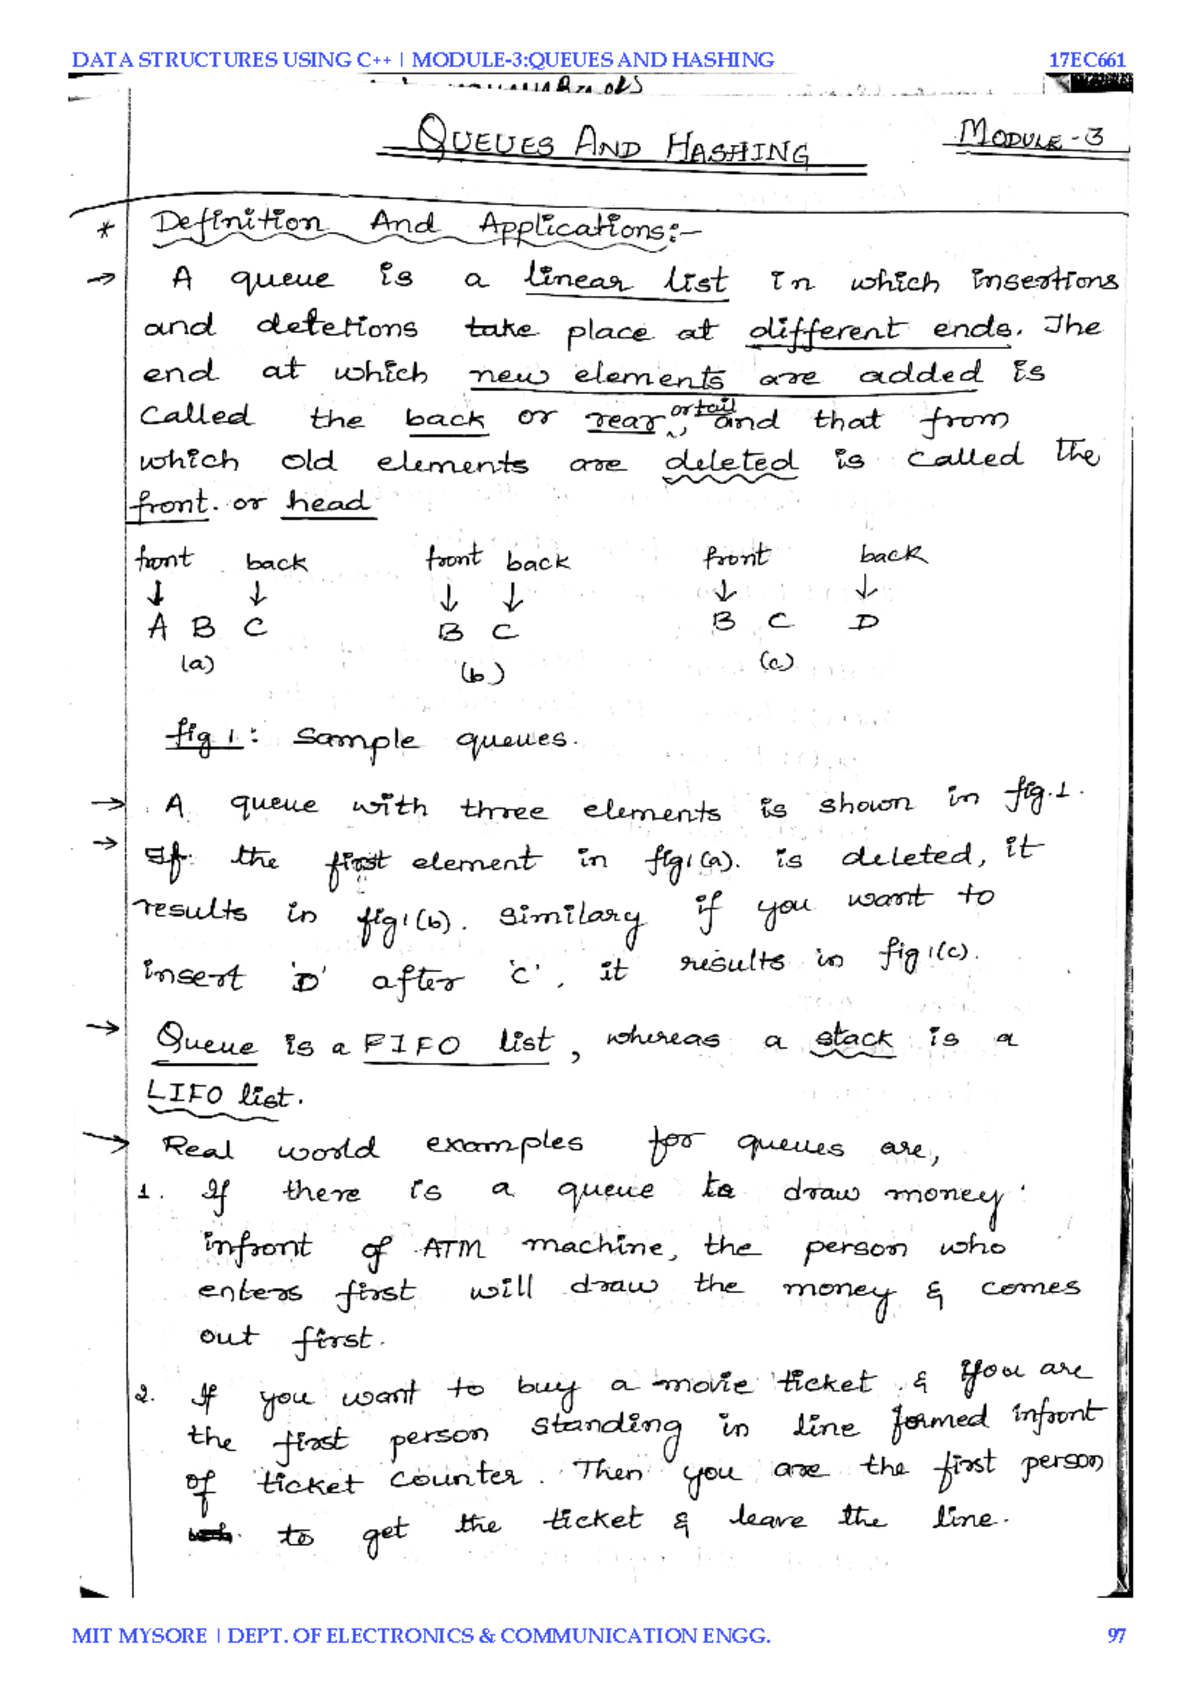 DATA STRUCTURES USING C++ | MODULE-3:QUEUES AND HASHING 17EC661
QUEUES AND HASHING MODULE-3
* Definition And Applications:-
→ A queue is a linear list in which insertions
and deletions take place at different ends. The
end at which new elements are added is
called the back or rear, or tail and that from
which old elements are deleted is called the
front. or head
front back front back front back
↓ ↓ ↓ ↓ ↓ ↓
A B C B C B C D
(a) (b) (c)
fig 1: Sample queues.
→ A queue with three elements is shown in fig.1.
→ If the first element in fig1(a). is deleted, it
results in fig1(b). Similary if you want to
insert 'D' after 'C', it results in fig1(c).
→ Queue is a FIFO list, whereas a stack is a
LIFO list.
→ Real world examples for queues are,
1. If there is a queue to draw money
infront of ATM machine, the person who
enters first will draw the money & comes
out first.
2. If you want to buy a movie ticket & you are
the first person standing in line formed infront
of ticket counter. Then you are the first person
to get the ticket & leave the line.
MIT MYSORE | DEPT. OF ELECTRONICS & COMMUNICATION ENGG. 97